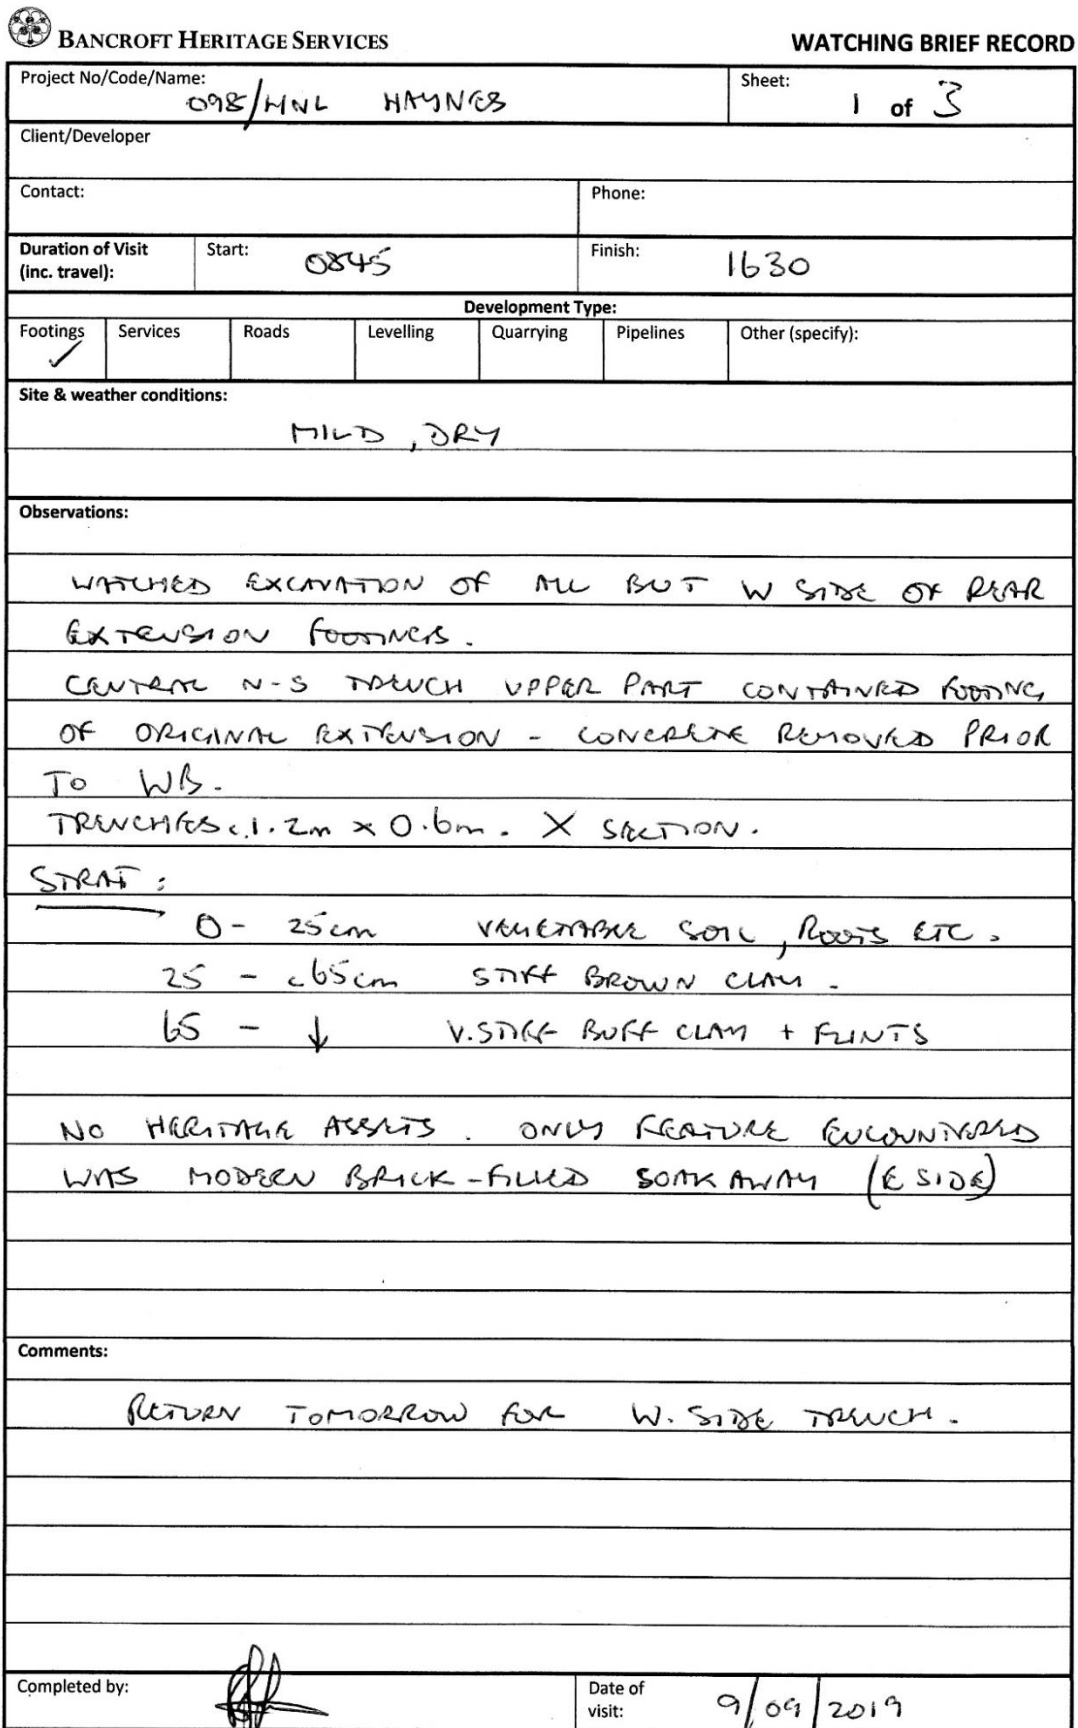 BANCROFT HERITAGE SERVICES
WATCHING BRIEF RECORD
Project No/Code/Name: 098/HNL HAYNES
Sheet: 1 of 3
Client/Developer
Contact:
Phone:
Duration of Visit (inc. travel):
Start: 0845
Finish: 1630
Development Type:
Footings ✓ Services Roads Levelling Quarrying Pipelines Other (specify):
Site & weather conditions:
MILD, DRY
Observations:
WATCHED EXCAVATION OF ALL BUT W SIDE OF REAR
EXTENSION FOOTINGS.
CENTRAL N-S TRENCH UPPER PART CONTAINED FOOTING
OF ORIGINAL EXTENSION - CONCRETE REMOVED PRIOR
TO WB.
TRENCHES c.1.2m x 0.6m. X SECTION.
STRAT:
0 - 25cm VEGETABLE SOIL, ROOTS ETC.
25 - c65cm STIFF BROWN CLAY.
65 - ↓ V.STIFF BUFF CLAY + FLINTS
NO HERITAGE ASSETS. ONLY FEATURE ENCOUNTERED
WAS MODERN BRICK-FILLED SOAKAWAY (E SIDE)
Comments:
RETURN TOMORROW FOR W. SIDE TRENCH.
Completed by:
Date of visit: 9/09/2019